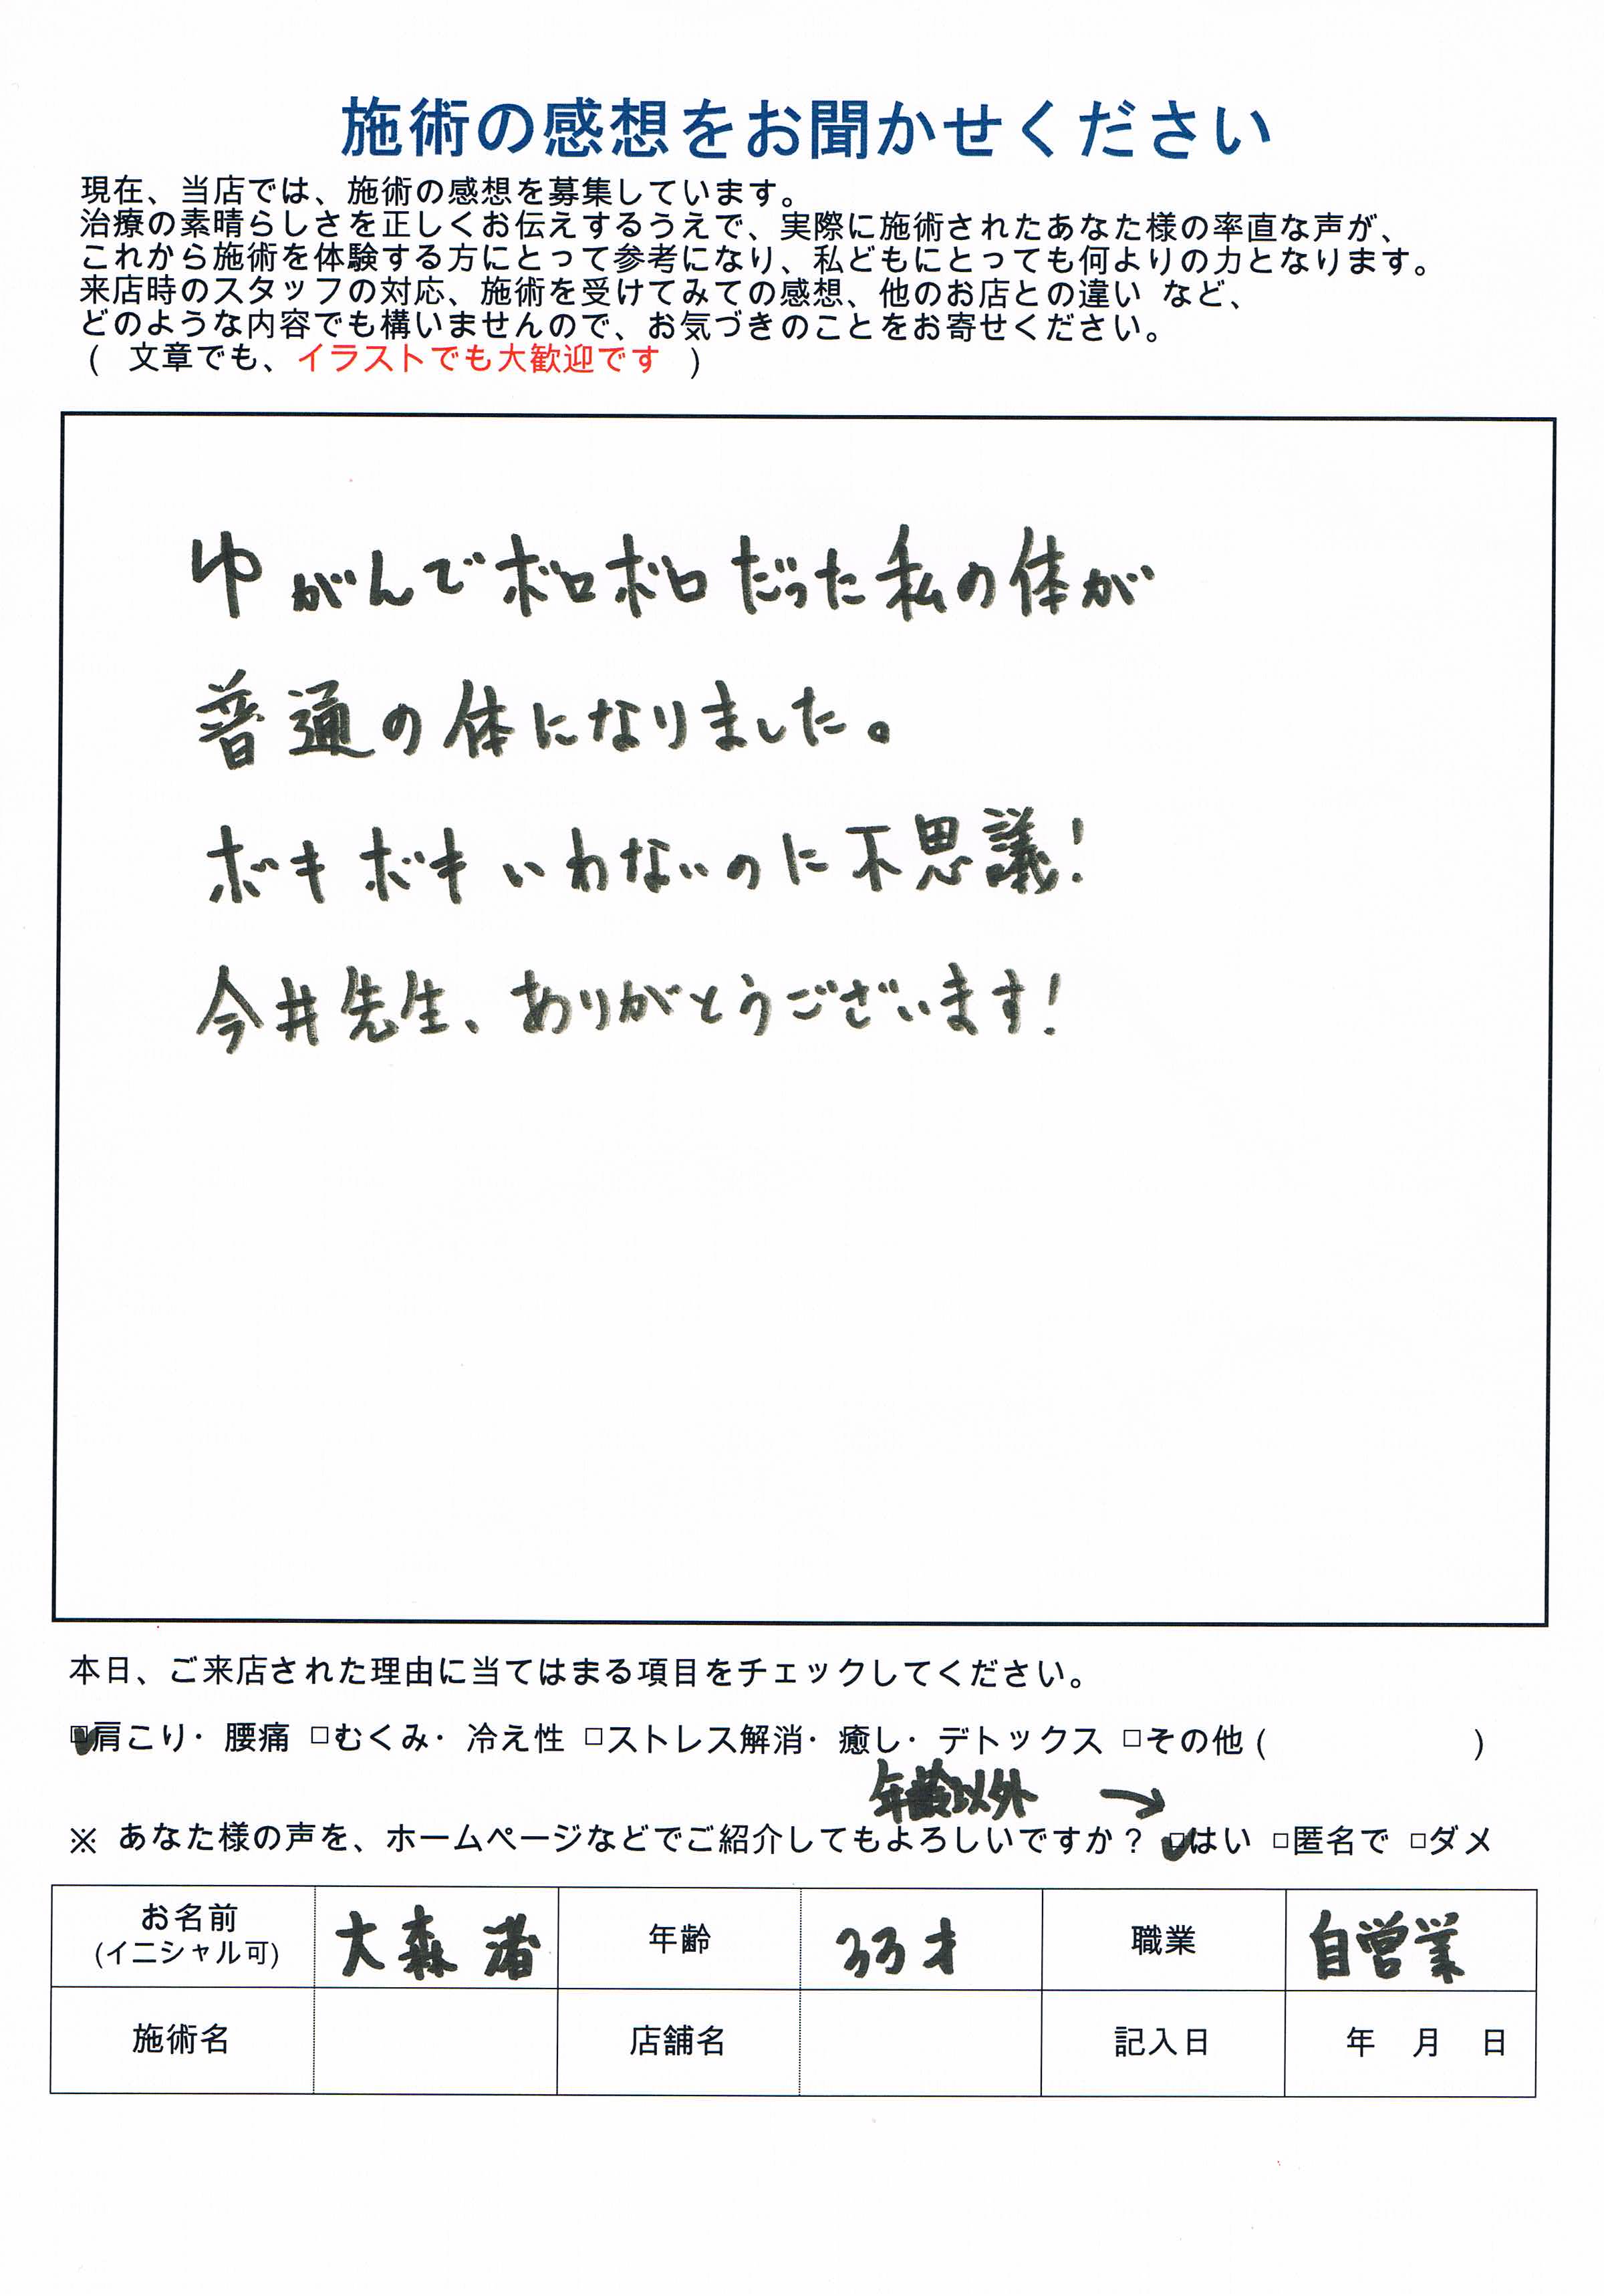 施術の感想をお聞かせください
現在、当店では、施術の感想を募集しています。
治療の素晴らしさを正しくお伝えするうえで、実際に施術されたあなた様の率直な声が、
これから施術を体験する方にとって参考になり、私どもにとっても何よりの力となります。
来店時のスタッフの対応、施術を受けてみての感想、他のお店との違い など、
どのような内容でも構いませんので、お気づきのことをお寄せください。
( 文章でも、イラストでも大歓迎です )
ゆがんでボロボロだった私の体が
普通の体になりました。
ボキボキいわないのに不思議!
今井先生、ありがとうございます!
本日、ご来店された理由に当てはまる項目をチェックしてください。
☑肩こり・腰痛 □むくみ・冷え性 □ストレス解消・癒し・デトックス □その他 ( )
年齢以外 →
※ あなた様の声を、ホームページなどでご紹介してもよろしいですか? ☑はい □匿名で □ダメ
お名前 (イニシャル可) 大森 渚 年齢 33才 職業 自営業
施術名 店舗名 記入日 年 月 日